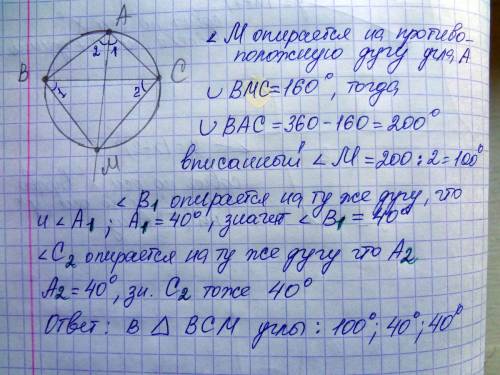 A
2 1
B
C
1
2
M
∠ M опирается на противо-
положную дугу угла, A
∪ BMC = 160°, тогда
∪ BAC = 360 - 160 = 200°
вписанный ∠ M = 200 : 2 = 100°
∠ B₁ опирается на ту же дугу, что
и ∠ A₁ ; A₁ = 40°, значит ∠ B₁ = 40°
∠C₂ опирается на ту же дугу что A₂
A₂ = 40°, зн. C₂ тоже 40°
Ответ: в △ BCM углы : 100°; 40°; 40°